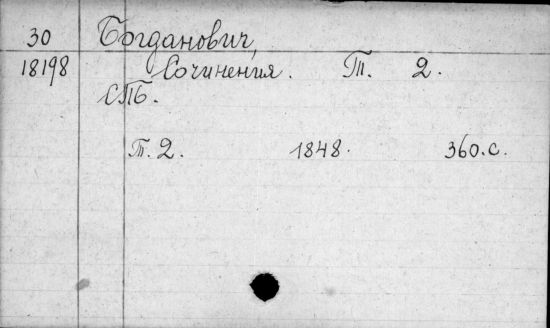 30 Богданович,
18198 Сочинения. Т. 2.
СПБ.
Т. 2. 1848. 360.с.